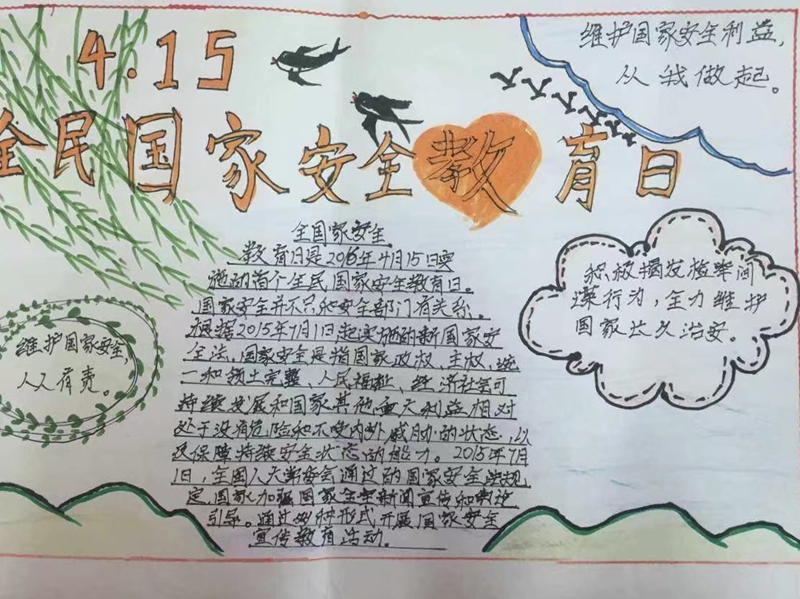 4.15
全民国家安全教育日
维护国家安全利益,
从我做起。
全国家安全
教育日是2016年4月15日实
施的首个全民国家安全教育日。
国家安全并不只和安全部门有关系。
根据2015年7月1日起实施的新国家安
全法,国家安全是指国家政权、主权、统
一和领土完整、人民福祉、经济社会可
持续发展和国家其他重大利益相对
处于没有危险和不受内外威胁的状态,以
及保障持续安全状态的能力。2015年7月
1日,全国人大常委会通过的国家安全法规
定,国家加强国家安全新闻宣传和
引导。通过多种形式开展国家安全
宣传教育活动。
维护国家安全,
人人有责。
积极揭发检举间
谍行为,全力维护
国家长久治安。